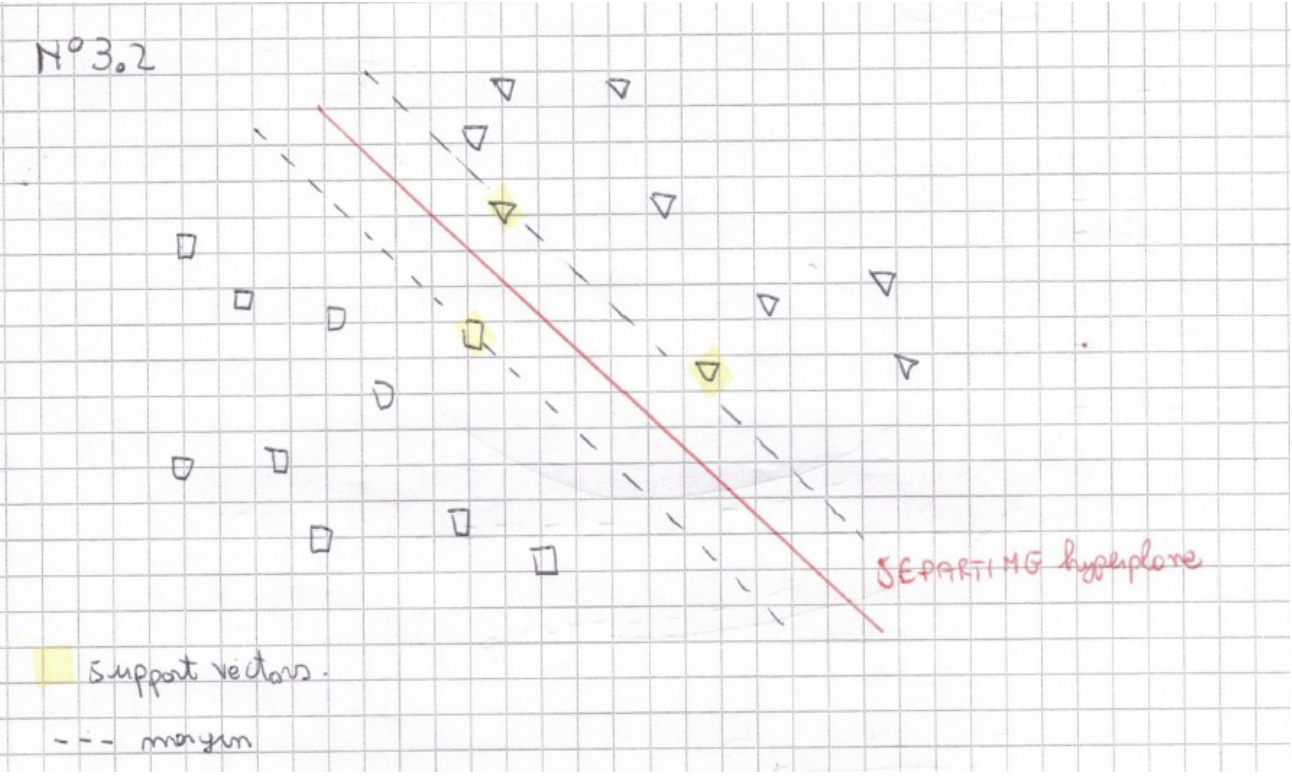 N° 3.2
SEPARTING hyperplane
support vectors.
--- margin